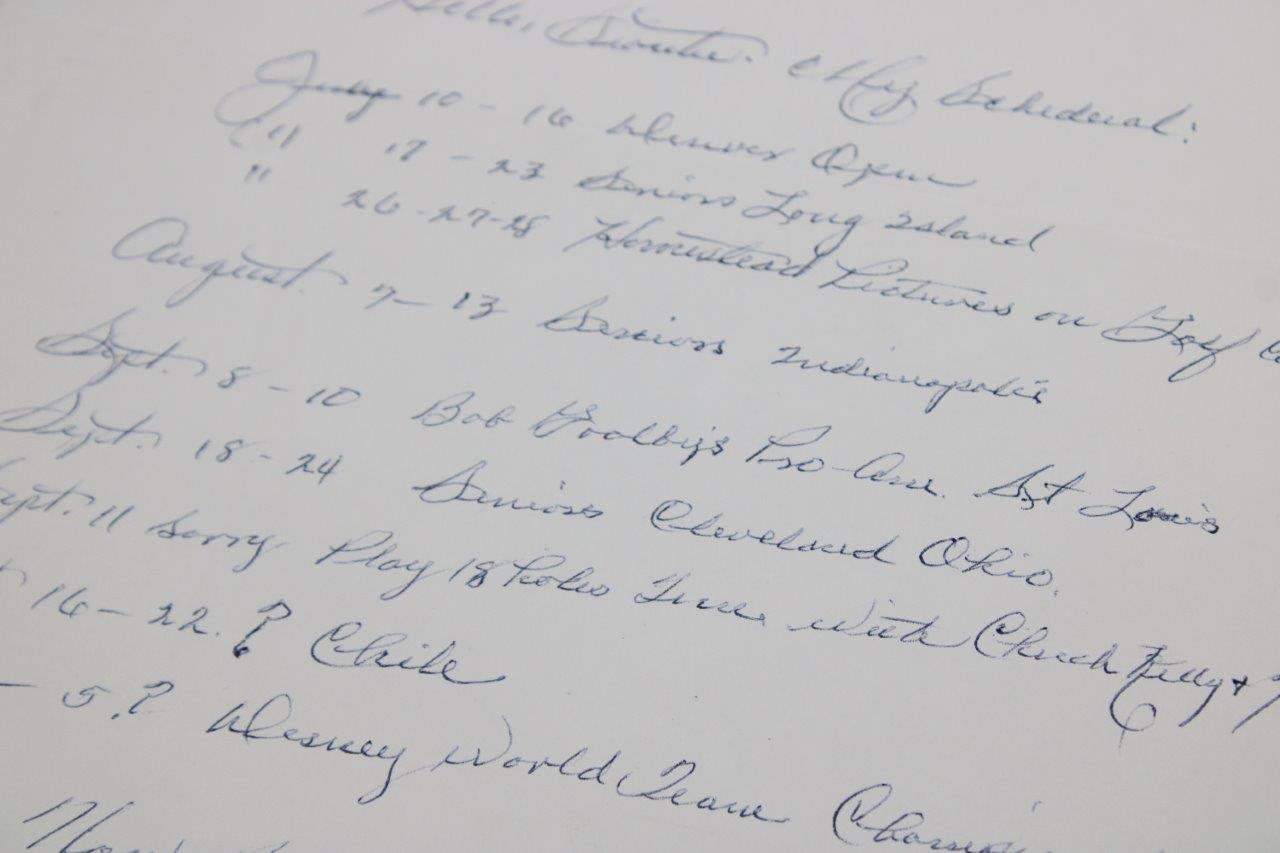 Hello, My Schedeual:
July 10 - 16 Denver Open
" 17 - 23 Seniors Long Island
" 26-27-28 Homestead Pictures on Golf
August 7 - 13 Seniors Indianapolis
Sept. 8 - 10 Bob Goalby's Pro-Am. St Louis
Sept. 18 - 24 Seniors Cleveland Ohio.
Sept. 11 Sorry Play 18 holes with Chuck Kelly +
16 - 22. ? Chile
- 5. ? Disney World Team